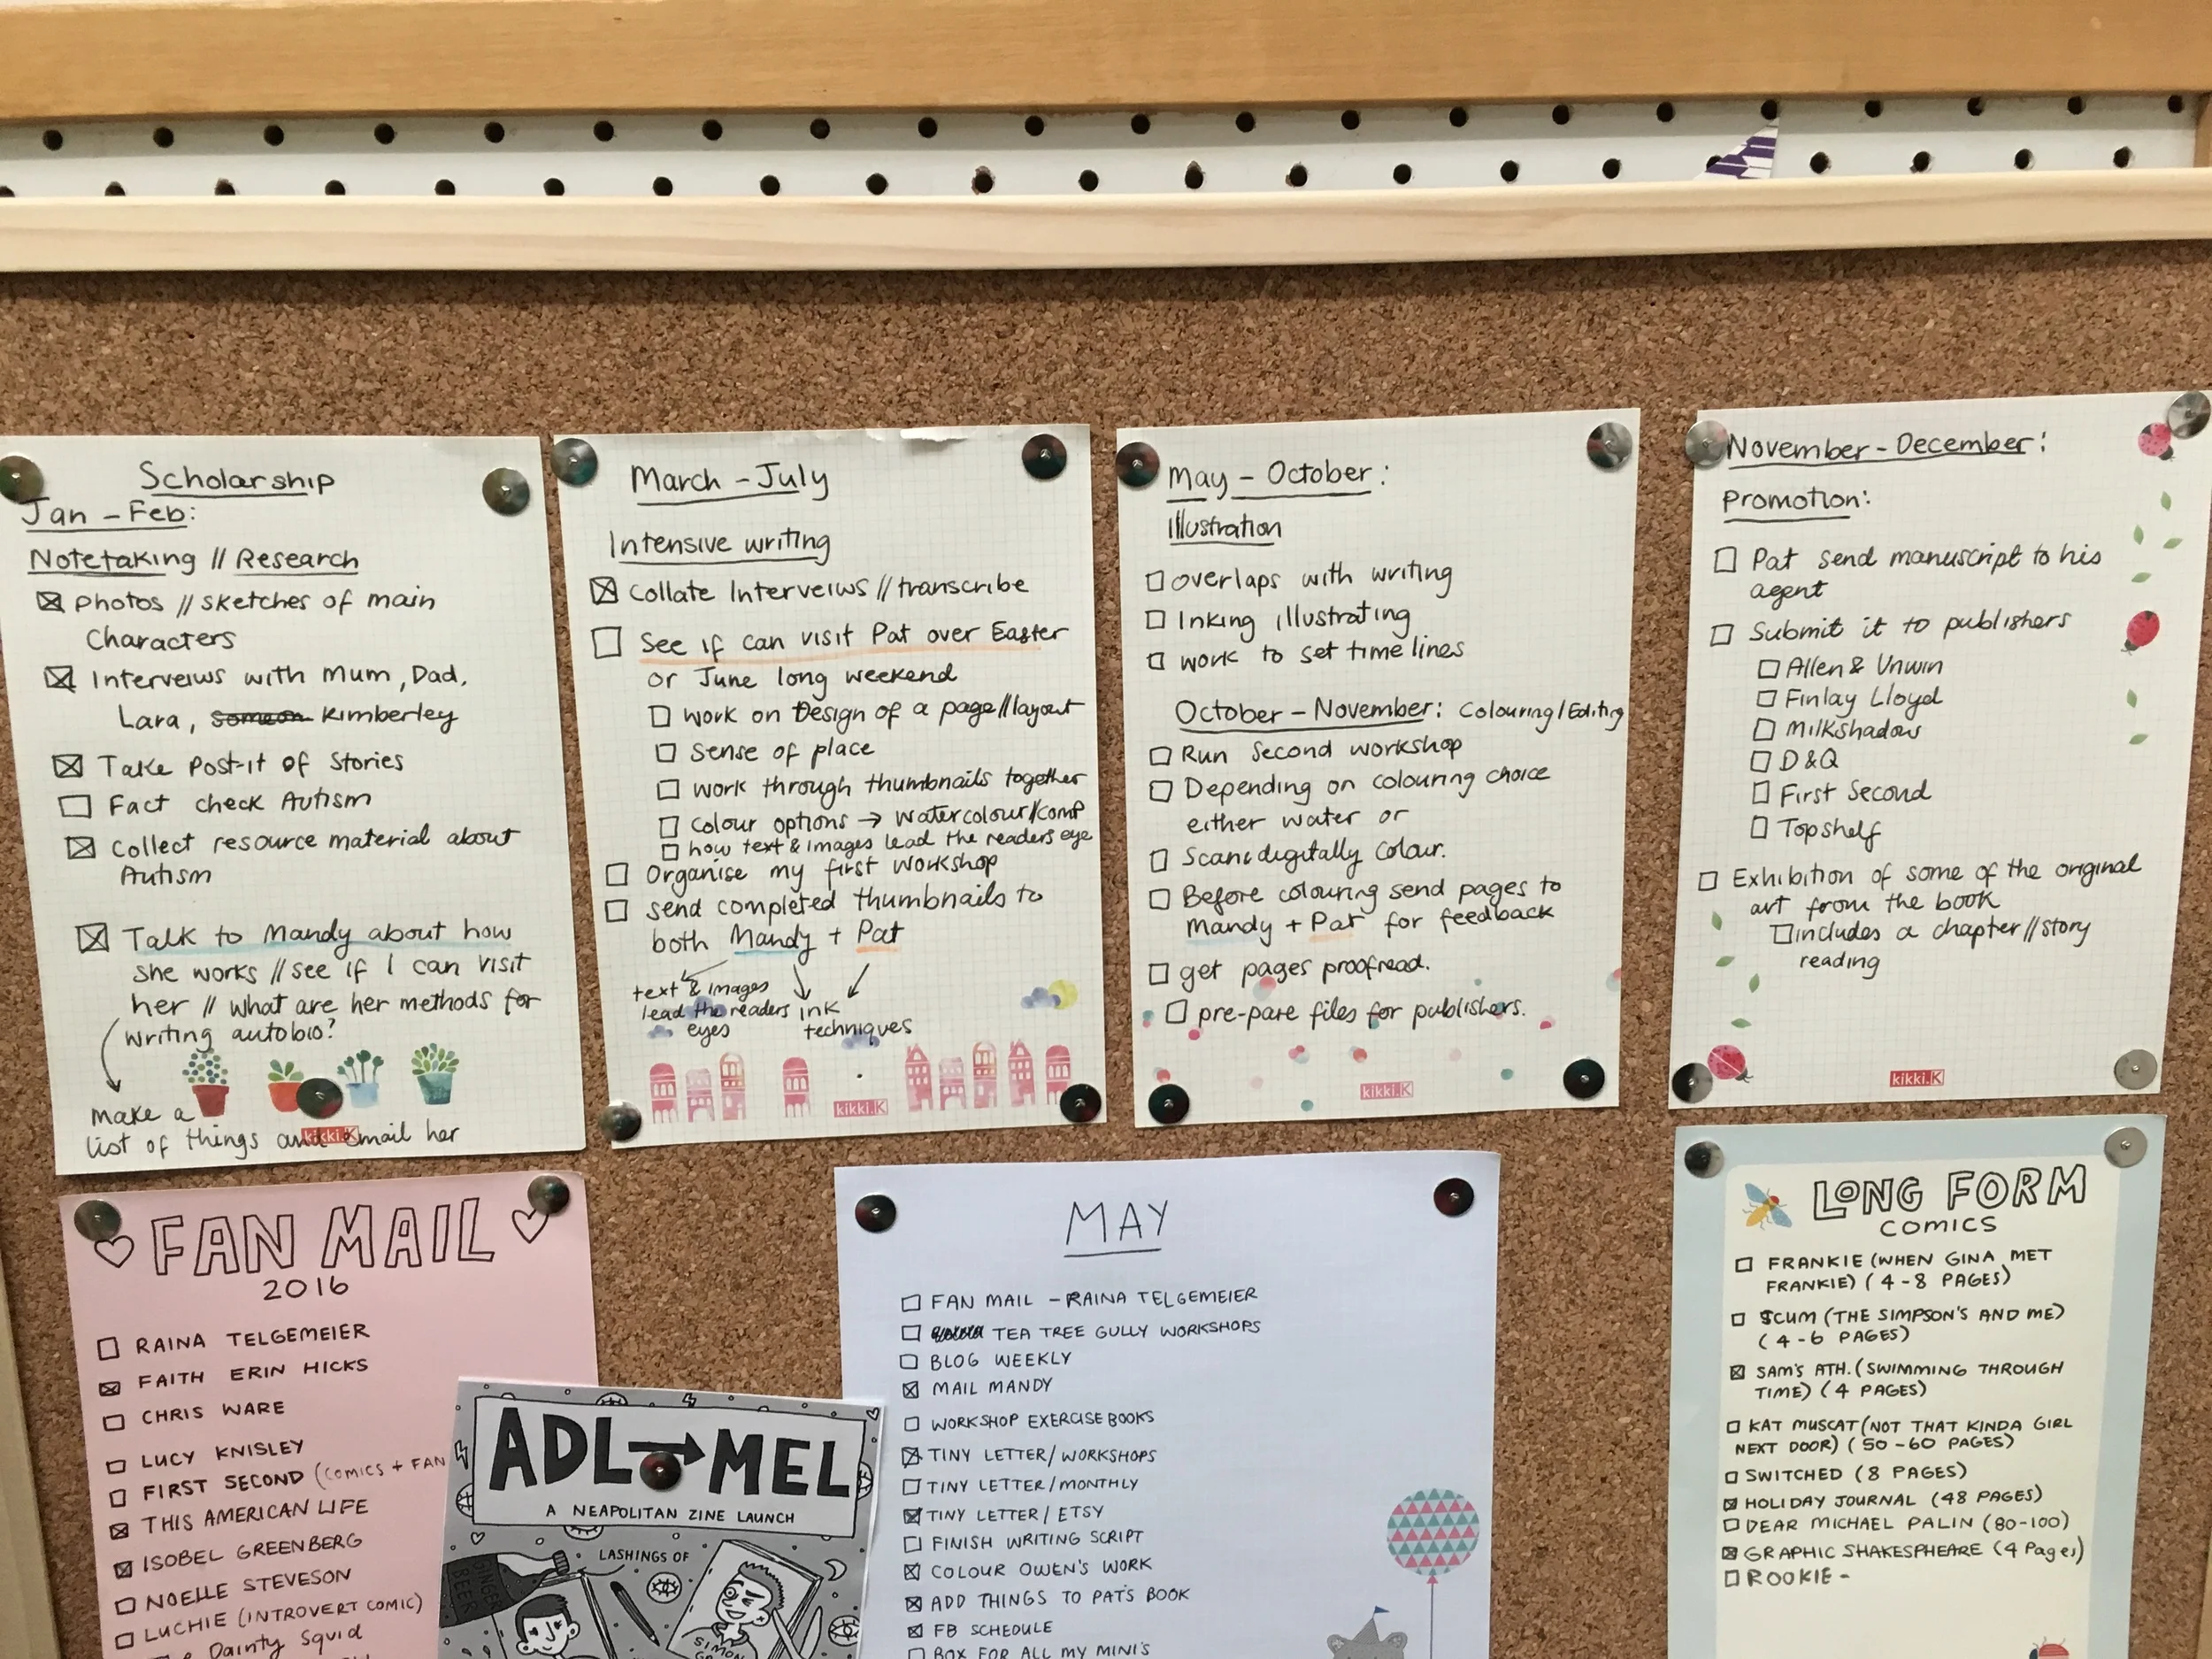 Scholarship
Jan - Feb:
Notetaking // Research
Photos // sketches of main
Characters
Interveiws with Mum, Dad,
Lara, someon Kimberley
Take Post-it of Stories
Fact check Autism
Collect resource material about
Autism
Talk to Mandy about how
she works // see if I can visit
her // what are her methods for
writing autobio?
make a
list of things and email her
kikki.K
March - July
Intensive writing
Collate Interveiws // transcribe
See if can visit Pat over Easter
or June long weekend
work on Design of a page // layout
Sense of place
work through thumbnails together
Colour options → watercolour // comp
how text & images lead the readers eye
Organise my first workshop
send completed thumbnails to
both Mandy + Pat
text & images
lead the readers
eyes
ink
techniques
kikki.K
May - October:
Illustration
overlaps with writing
Inking illustrating
work to set time lines
October - November: Colouring/Editing
Run Second workshop
Depending on colouring choice
either water or
Scan digitally Colour.
Before colouring send pages to
Mandy + Pat for feedback
get pages proofread.
pre-pare files for publishers.
kikki.K
November - December:
Promotion:
Pat send manuscript to his
agent
Submit it to publishers
Allen & Unwin
Finlay Lloyd
Milkshadow
D&Q
First Second
Topshelf
Exhibition of some of the original
art from the book
includes a chapter // story
reading
kikki.K
FAN MAIL
2016
RAINA TELGEMEIER
FAITH ERIN HICKS
CHRIS WARE
LUCY KNISLEY
FIRST SECOND (COMICS + FAN
THIS AMERICAN LIFE
ISOBEL GREENBERG
NOELLE STEVESON
LUCHIE (INTROVERT COMIC)
Dainty Squid
ADL → MEL
A NEAPOLITAN ZINE LAUNCH
LASHINGS OF
GINGER
BEER
SIMON
MAY
FAN MAIL - RAINA TELGEMEIER
TEA TREE GULLY WORKSHOPS
BLOG WEEKLY
MAIL MANDY
WORKSHOP EXERCISE BOOKS
TINY LETTER/WORKSHOPS
TINY LETTER/MONTHLY
TINY LETTER/ETSY
FINISH WRITING SCRIPT
COLOUR OWEN'S WORK
ADD THINGS TO PAT'S BOOK
FB SCHEDULE
BOX FOR ALL MY MINI'S
LONG FORM
COMICS
FRANKIE (WHEN GINA MET
FRANKIE) (4-8 PAGES)
SCUM (THE SIMPSON'S AND ME)
(4-6 PAGES)
SAM'S ATH. (SWIMMING THROUGH
TIME) (4 PAGES)
KAT MUSCAT (NOT THAT KINDA GIRL
NEXT DOOR) (50-60 PAGES)
SWITCHED (8 PAGES)
HOLIDAY JOURNAL (48 PAGES)
DEAR MICHAEL PALIN (80-100)
GRAPHIC SHAKESPHEARE (4 Pages)
ROOKIE -